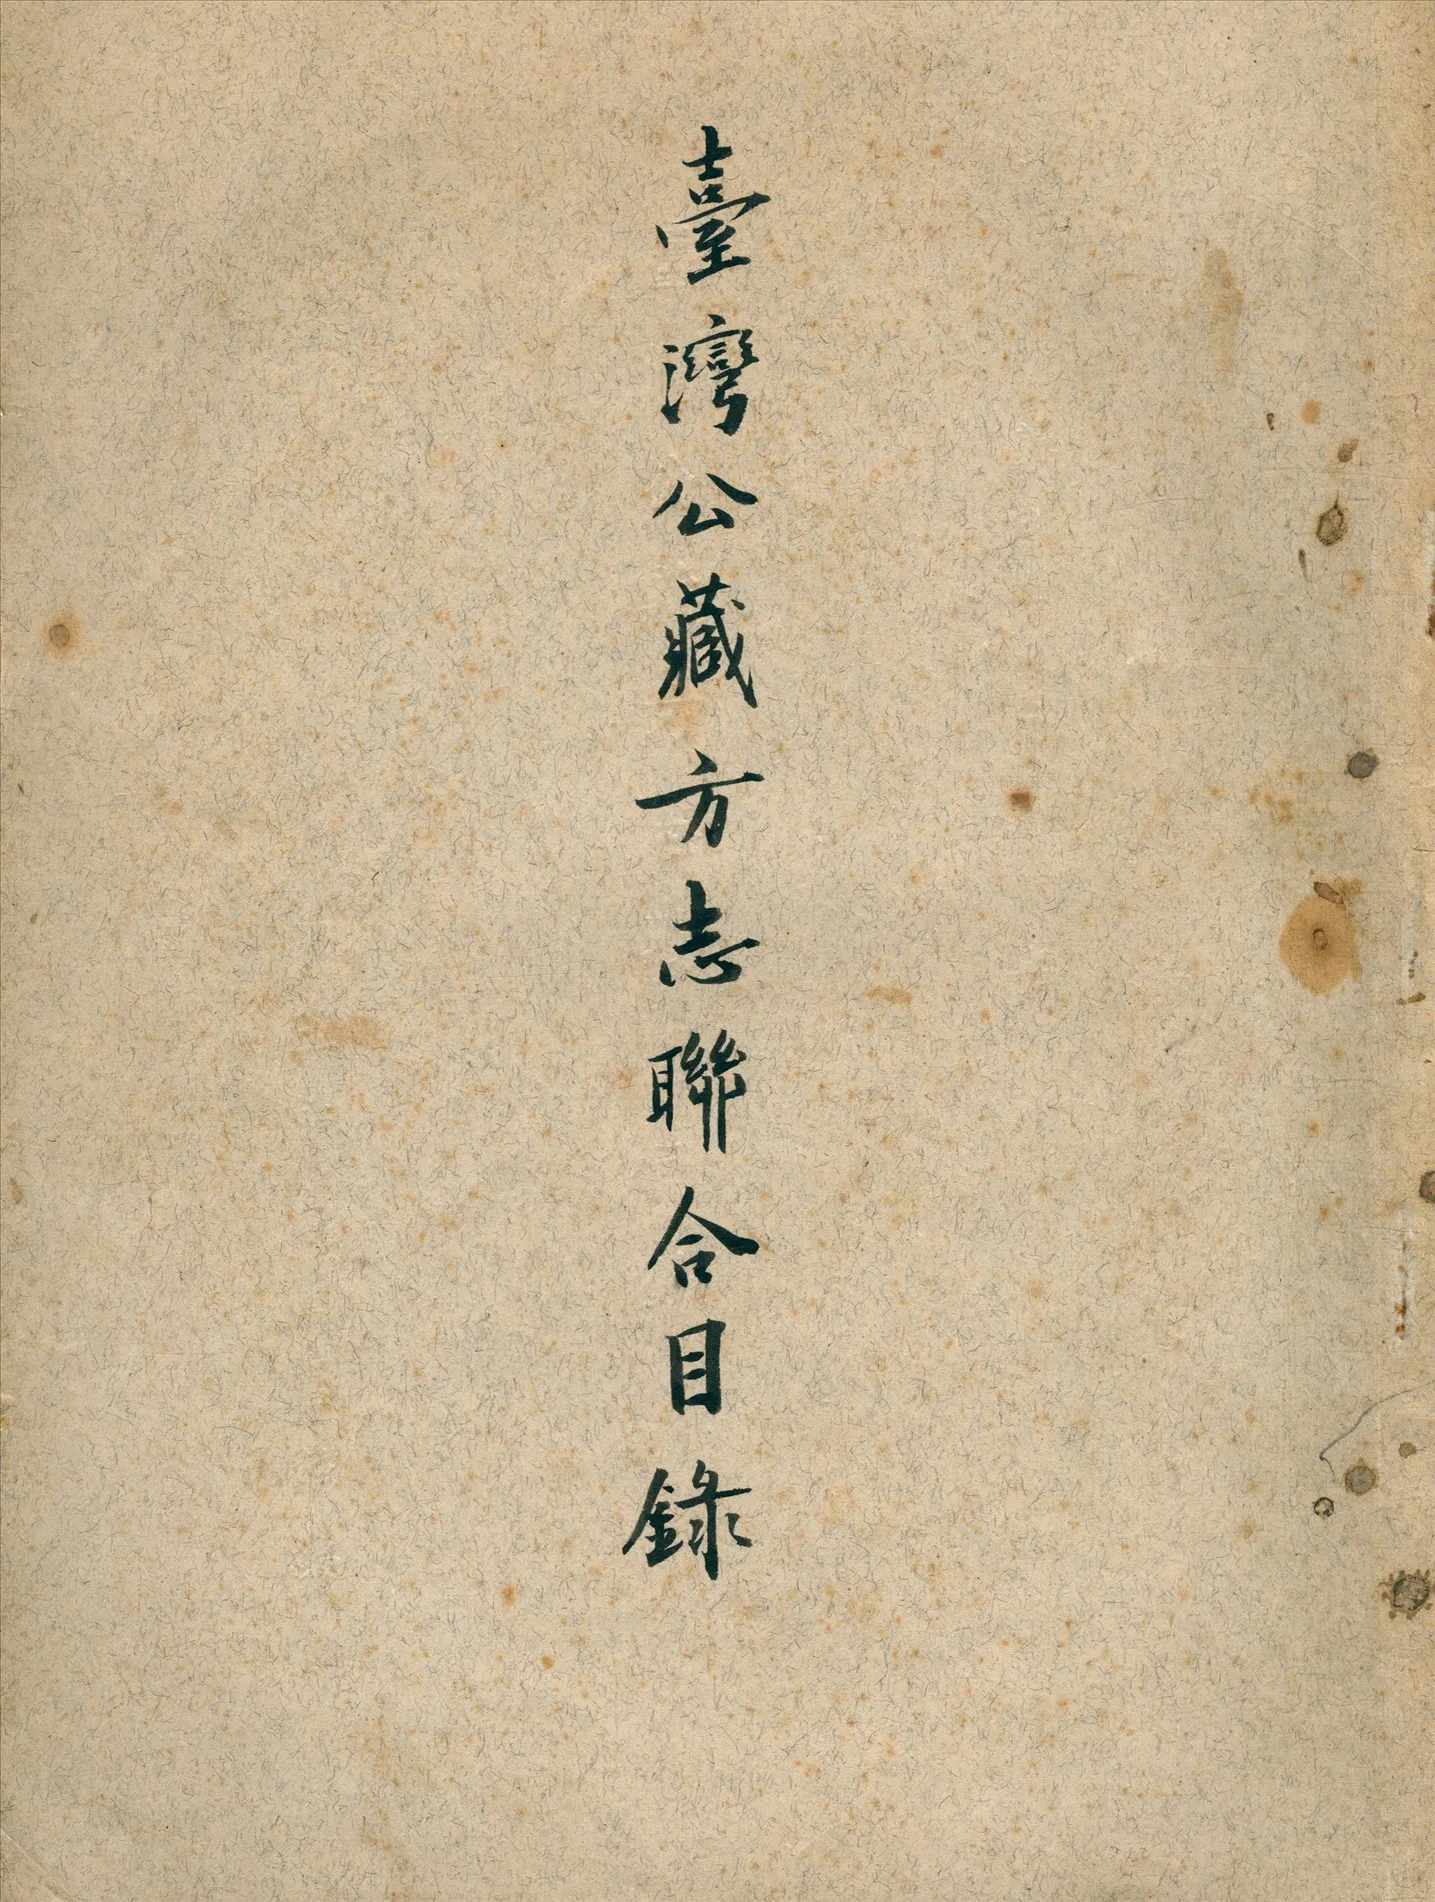 臺灣公藏方志聯合目錄